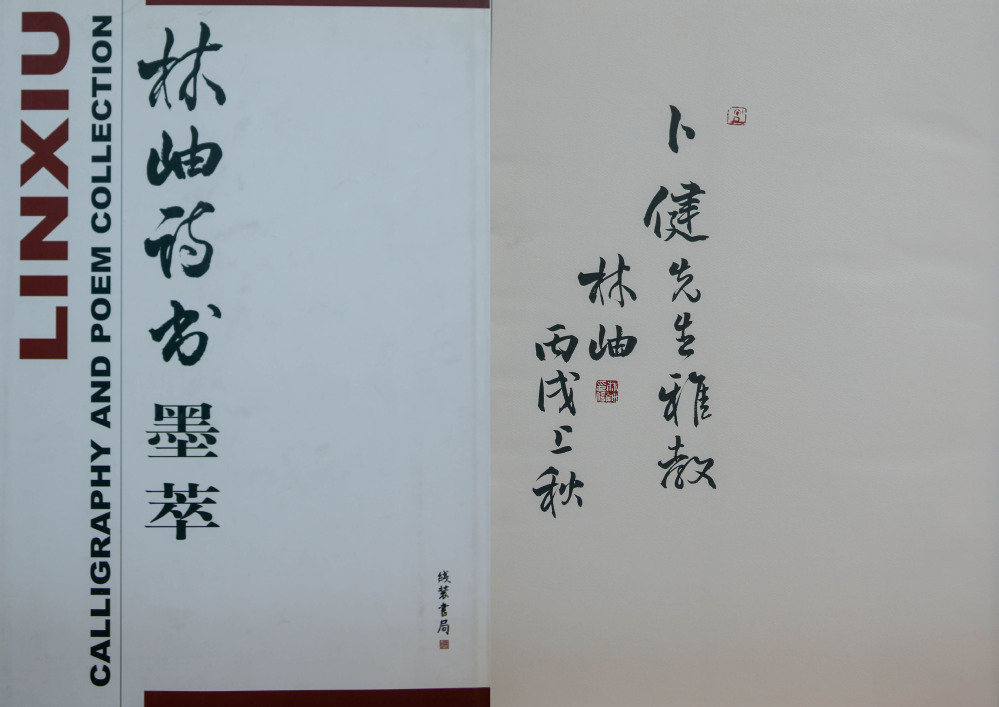 LINXIU
CALLIGRAPHY AND POEM COLLECTION
林岫诗书墨萃
线装书局
卜健先生雅教
林岫
丙戌上秋